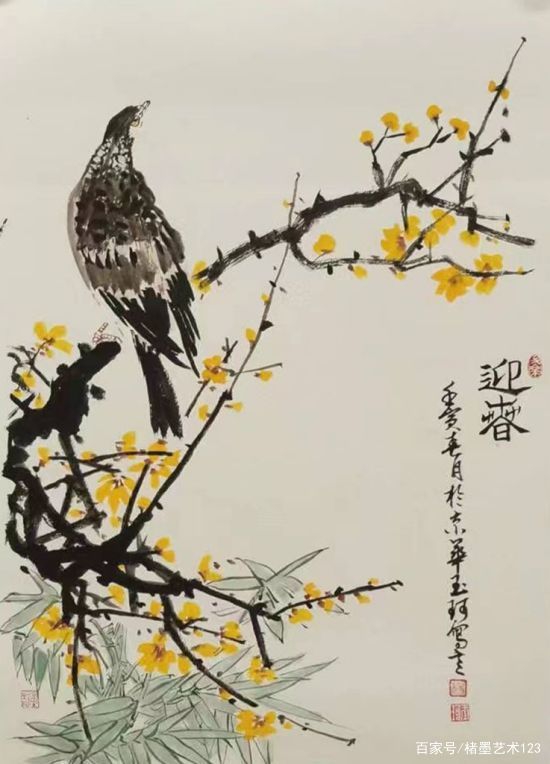 迎春
壬寅春月於京華玉珂寫之
百家号/楮墨艺术123